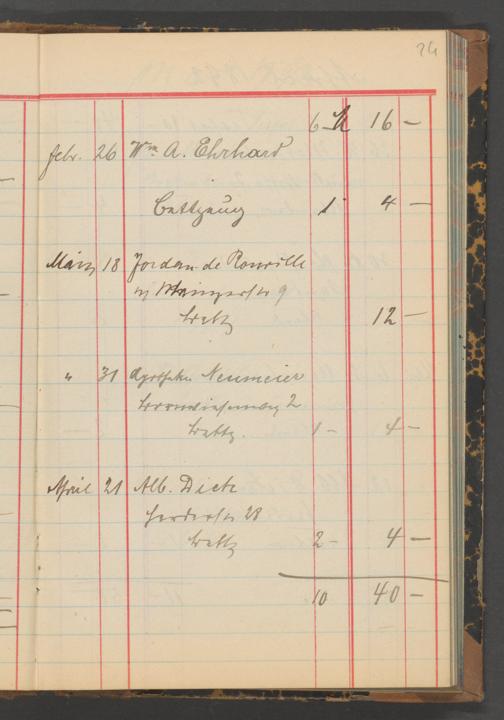 24
6 16 —
febr. 26 Wm A. Ehrhard
Bettzeug 1 4 —
März 18 Jordan de Rouville
9
Bettz 12 —
" 31 Apotheker Neumeier
2
Bettz. 1 — 4 —
April 21 Alb. Dick
Herderstr 28
Bettz 2 — 4 —
10 40 —